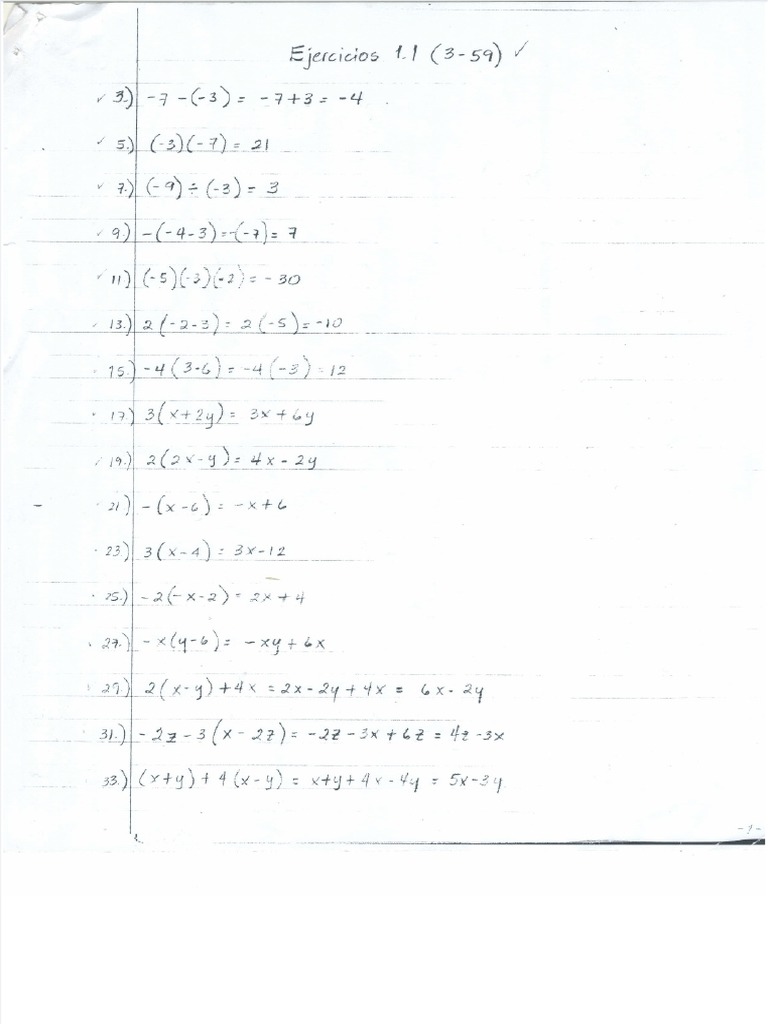 Ejercicios 1.1 (3-59) ✓
✓ 3.) -7 -(-3) = -7+3 = -4
✓ 5.) (-3)(-7) = 21
✓ 7.) (-9) ÷ (-3) = 3
✓ 9.) -(-4-3)=-(-7)= 7
✓ 11) (-5)(-3)(-2)= -30
13.) 2(-2-3) = 2(-5)=-10
15.) -4(3-6) = -4(-3)=12
17.) 3(x+2y) = 3x+6y
✓ 19.) 2(2x-y)= 4x-2y
21) -(x-6) = -x+6
23.) 3(x-4) = 3x-12
25.) -2(-x-2) = 2x+4
27.) -x(y-6) = -xy+6x
29.) 2(x-y)+4x = 2x-2y+4x = 6x-2y
31.) -2z-3(x-2z) = -2z-3x+6z = 4z-3x
33.) (x+y)+4(x-y) = x+y+4x-4y = 5x-3y
-1-